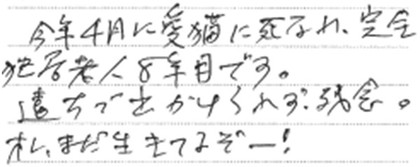 今年4月に愛猫に死なれ、完全
独居老人8年目です。
遠ちでとかけくれず、残念。
オレまだ生きてるぞー!